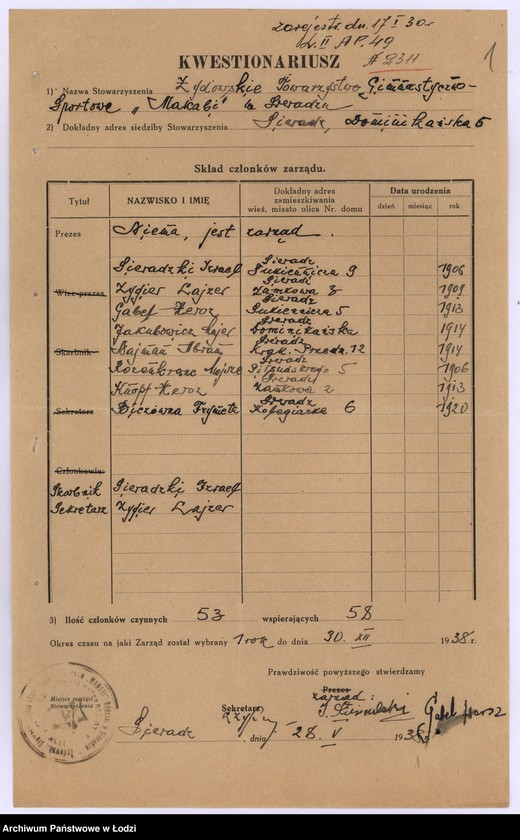 zarejestr. dn. 17 I 30 r.
L. II A P. 49
A 2311
1
KWESTIONARIUSZ
1) Nazwa Stowarzyszenia Żydowskie Towarzystwo Gimnastyczno-
Sportowe „Makabi" w Sieradzu
2) Dokładny adres siedziby Stowarzyszenia Sieradz, Dominikańska 5
Skład członków zarządu.
Tytuł NAZWISKO I IMIĘ Dokładny adres zamieszkiwania wieś, miasto ulica Nr. domu Data urodzenia
dzień miesiąc rok
Prezes Niema, jest zarząd.
Sieradzki Izrael Sieradz Sukiennicza 9 1906
Wice-prezes Zygier Lajzer Sieradz Zamkowa 3 1909
Gabel Hersz Sieradz Sukiennicza 5 1913
Jakubowicz Majer Sieradz Dominikańska 1914
Skarbnik Bajman Abram Sieradz Krak. Przedm. 12 1914
Rozenkranc Mojsze Sieradz Piłsudskiego 5 1906
Knopf Hersz Sieradz Zamkowa 2 1913
Sekretarz Frymeta Sieradz Kolegiacka 6 1920
Członkowie:
Skarbnik Sieradzki Izrael
Sekretarz Zygier Lajzer
3) Ilość członków czynnych 53 wspierających 58
Okres czasu na jaki Zarząd został wybrany 1 rok do dnia 30. XII 1938 r.
Prawdziwość powyższego stwierdzamy
Miejsce pieczęci Stowarzyszenia
Prezes
zarząd:
Sekretarz
Gabel Hersz
Sieradz, dnia 28. V 193 r.
Archiwum Państwowe w Łodzi